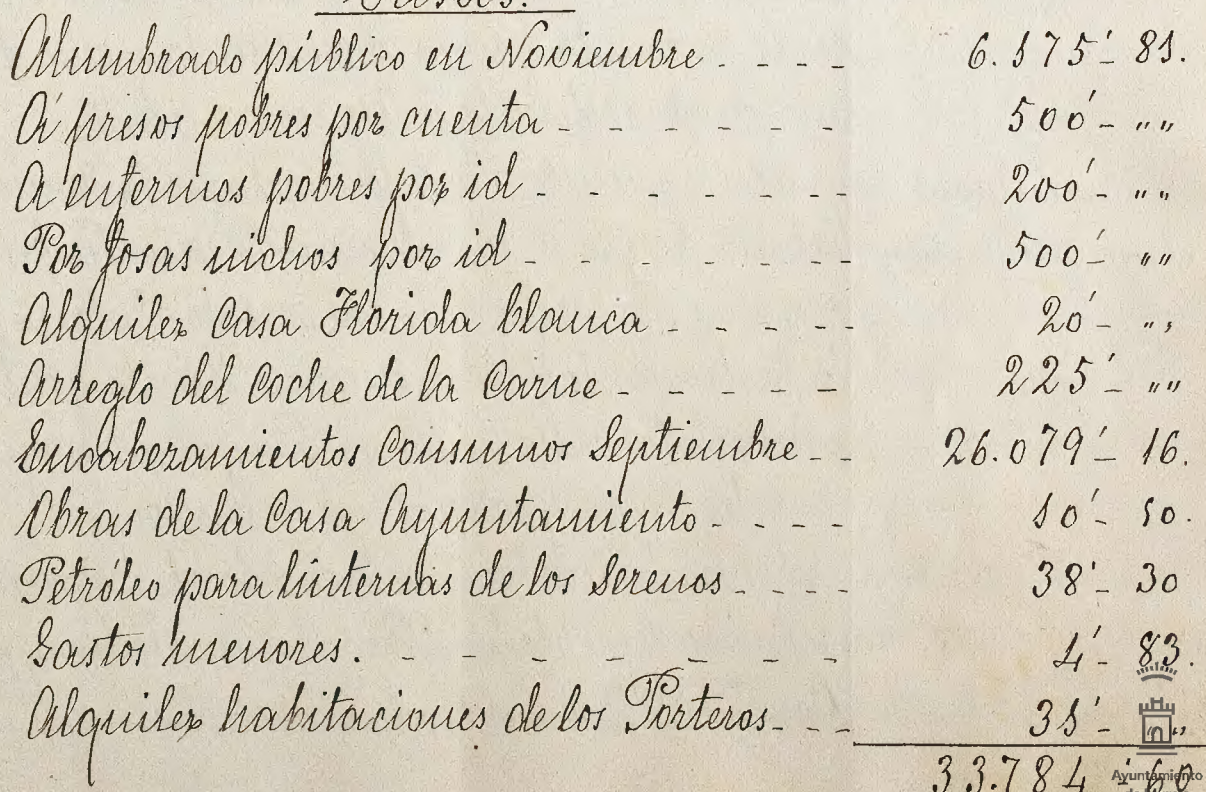 Gastos.
Alumbrado público en Noviembre - - - - 6.175'- 81.
Á presos pobres por cuenta - - - - - - 500'- „„
A enfermos pobres por id - - - - - - - 200'- „„
Por fosas nichos por id - - - - - - - 500'- „„
Alquiler Casa Florida blanca - - - - - 20'- „„
Arreglo del Coche de la Carne - - - - - 225'- „„
Encabezamientos Consumos Septiembre - - 26.079'- 16.
Obras de la Casa Ayuntamiento - - - - 10'- 50.
Petróleo para linternas de los Serenos - - - - 38'- 30
Gastos menores. - - - - - - - 4'- 83.
Alquiler habitaciones de los Porteros - - - 31'- „
33.784'- 60
Ayuntamiento